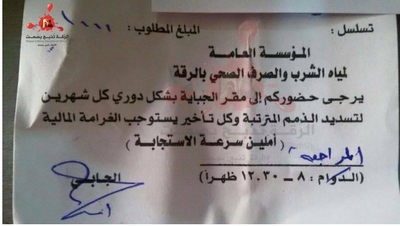 تسلسل : المبلغ المطلوب : ١٠٠٠
المؤسسة العامة
لمياه الشرب والصرف الصحي بالرقة
يرجى حضوركم إلى مقر الجباية بشكل دوري كل شهرين
لتسديد الذمم المترتبة وكل تأخير يستوجب الغرامة المالية
( أملين سرعة الاستجابة )
المراجعة
(الدوام : ٨ - ١٢.٣٠ ظهراً) الجابي
الرقة تذبح بصمت